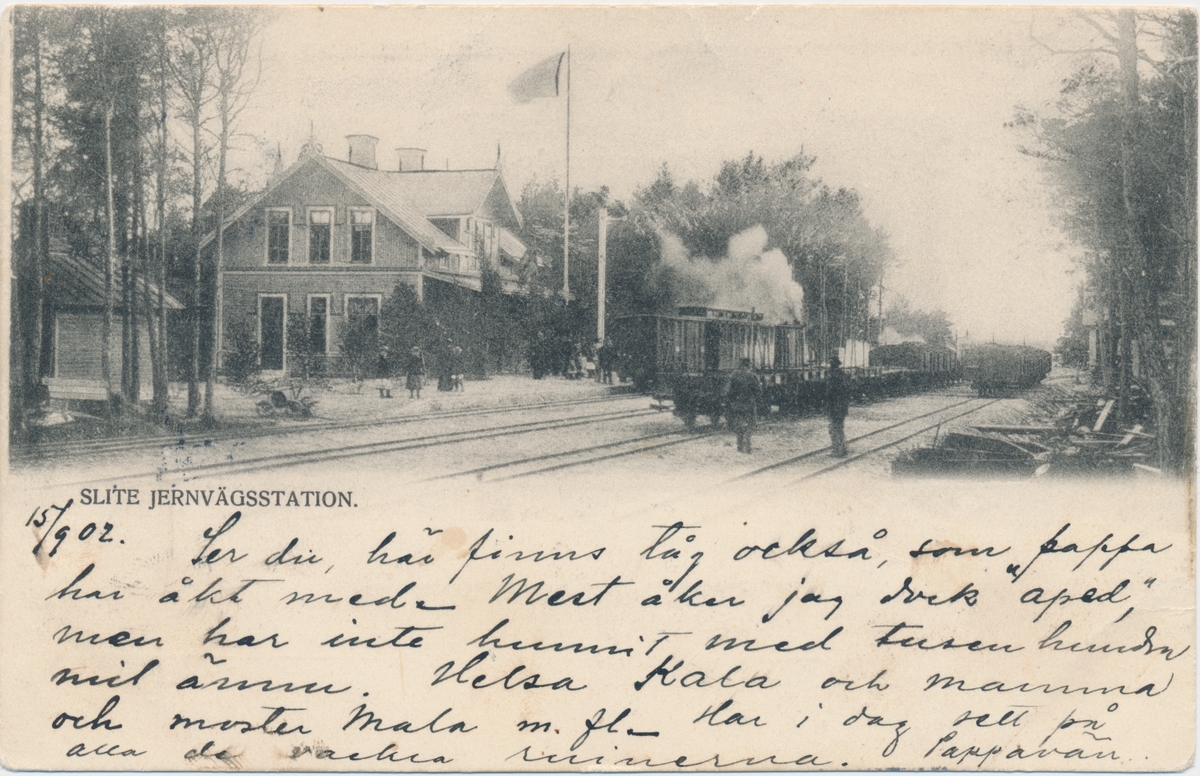 SLITE JERNVÄGSSTATION.
15/9 02.
Ser du, här finns tåg också, som pappa
har åkt med. Mest åker jag dock "aped",
men har inte hunnit med tusen hundra
mil ännu. Helsa Kala och mamma
och moster Mala m. fl. Har i dag sett på
alla de vackra ruinerna. Pappavän.